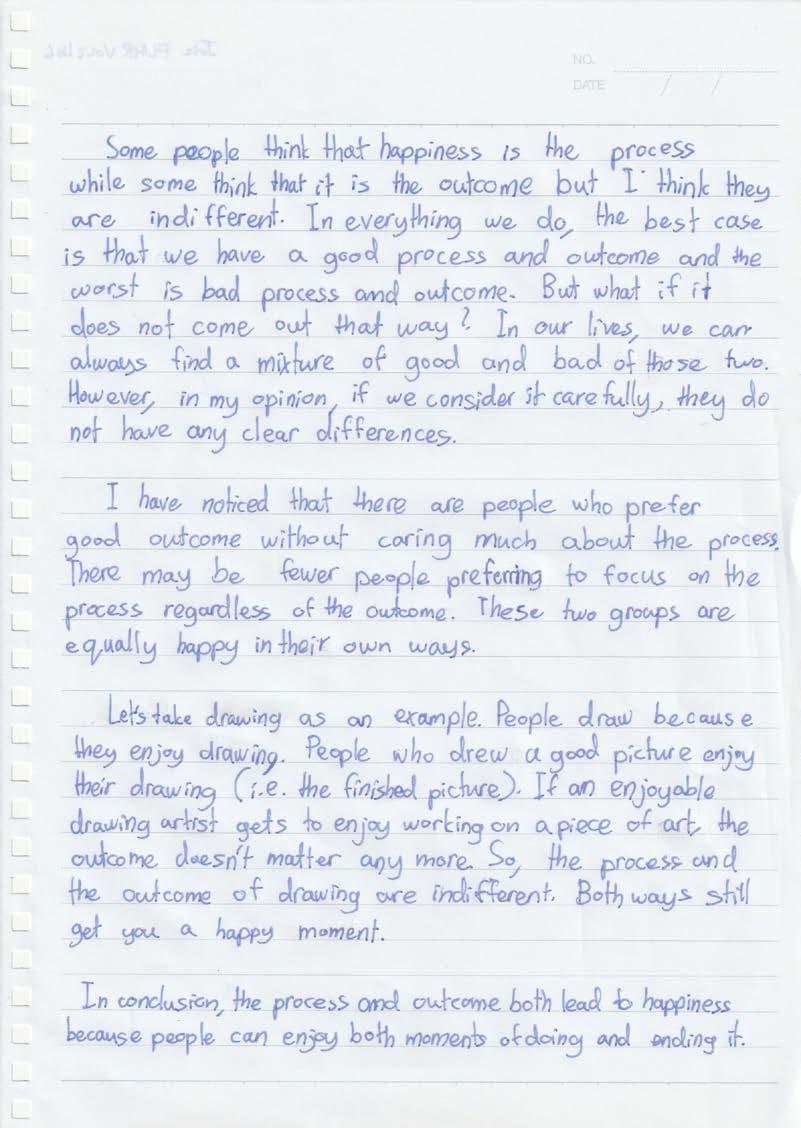 NO.
DATE / /
Some people think that happiness is the process
while some think that it is the outcome but I think they
are indifferent. In everything we do, the best case
is that we have a good process and outcome and the
worst is bad process and outcome. But what if it
does not come out that way? In our lives, we can
always find a mixture of good and bad of those two.
However, in my opinion, if we consider it carefully, they do
not have any clear differences.
I have noticed that there are people who prefer
good outcome without caring much about the process.
There may be fewer people preferring to focus on the
process regardless of the outcome. These two groups are
equally happy in their own ways.
Let's take drawing as an example. People draw because
they enjoy drawing. People who drew a good picture enjoy
their drawing (i.e. the finished picture). If an enjoyable
drawing artist gets to enjoy working on a piece of art, the
outcome doesn't matter any more. So, the process and
the outcome of drawing are indifferent. Both ways still
get you a happy moment.
In conclusion, the process and outcome both lead to happiness
because people can enjoy both moments of doing and ending it.